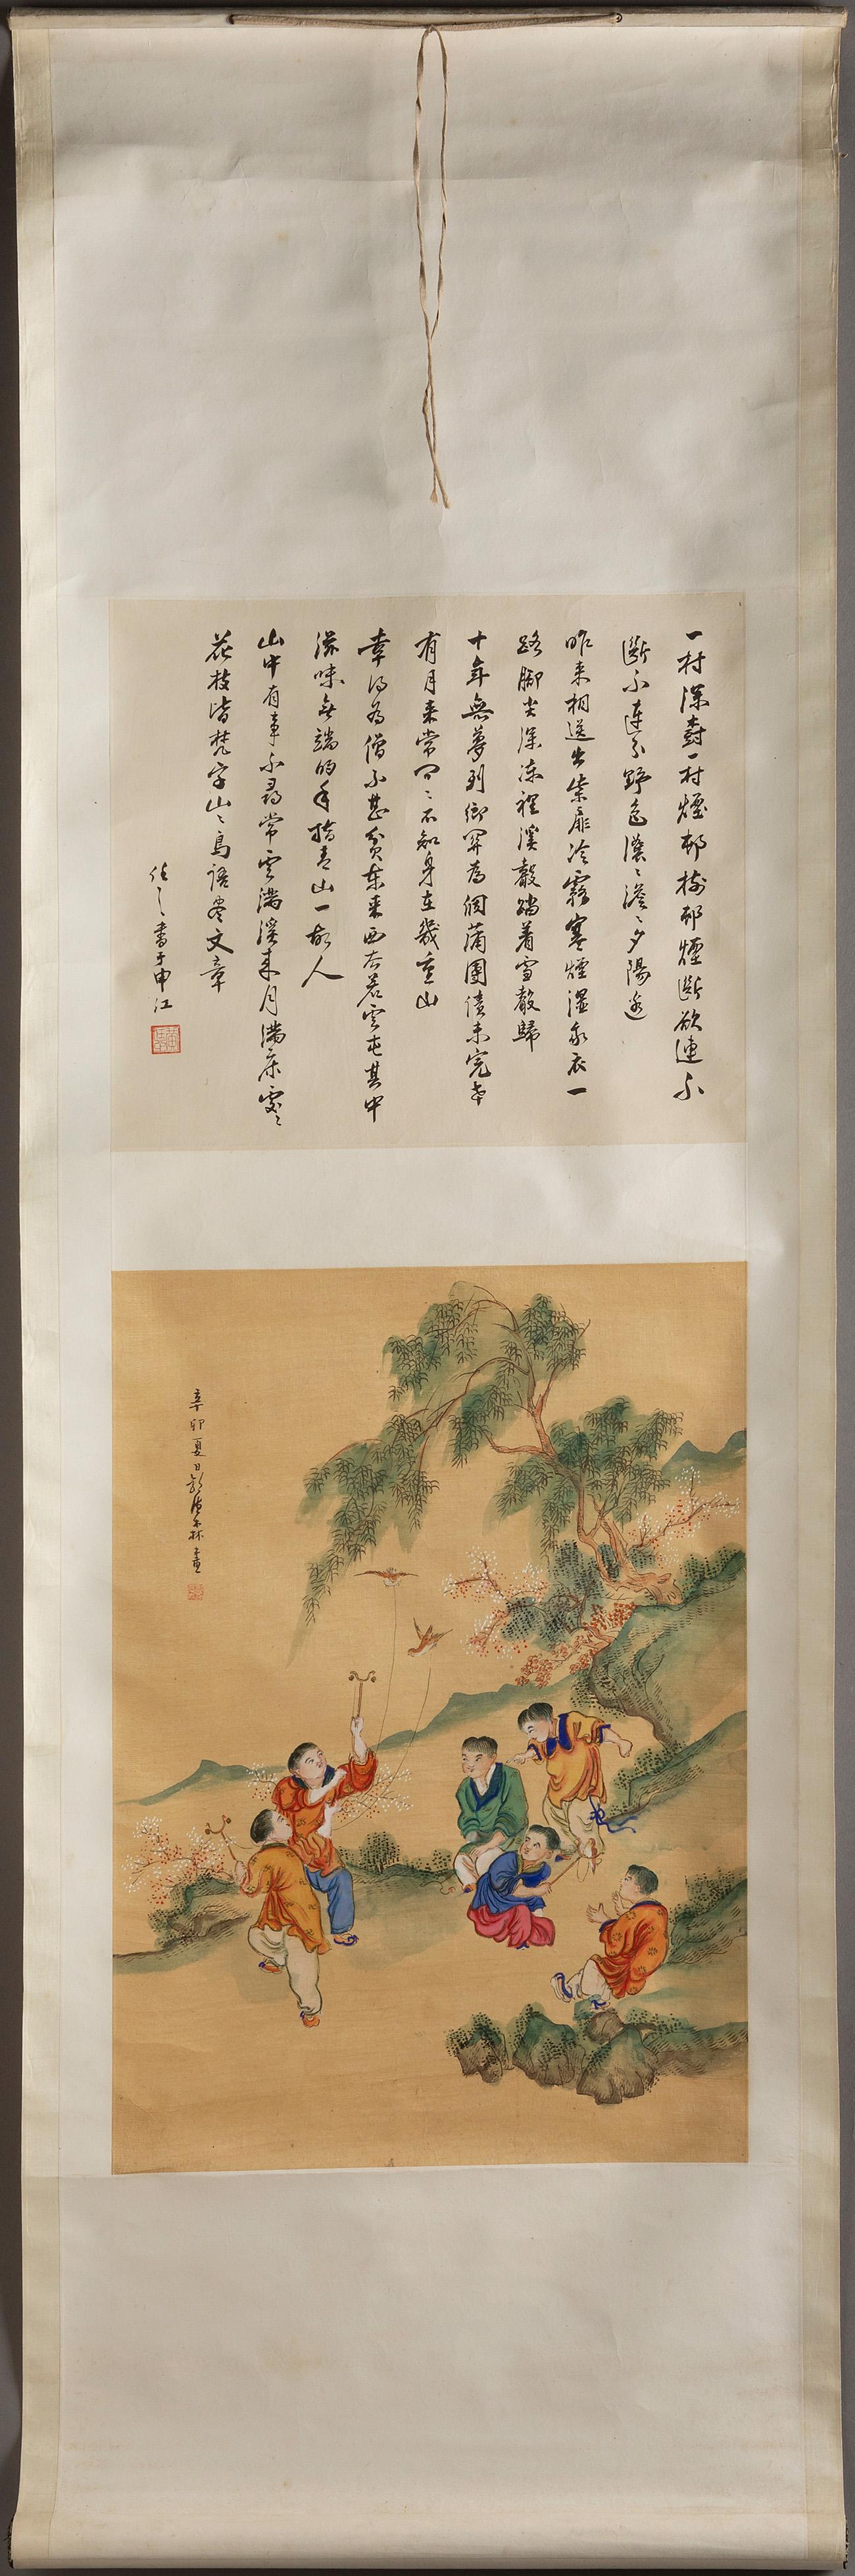 一村深樹一村煙邨樹邨煙斷欲連不
斷不連分野色濃〻淡〻夕陽邊
昨來相送出柴扉冷霧寒煙濕衣一
路腳尖深凍裡溪聲踏着雪聲歸
十年無夢到鄉關為個蒲團債未完
有月來常問〻不知身在幾重山
幸得為僧不甚貧東來西去若雲屯其中
滋味無端的手指青山一故人
山中有事不尋常雲滿溪來月滿床處〻
花枝皆梵字山〻鳥語盡文章
任之書于申江
辛卯夏日林畫